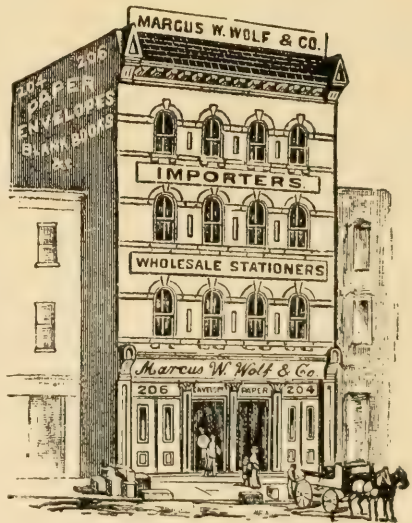 MARCUS W. WOLF & CO.
204 206
PAPER
ENVELOPES
BLANK BOOKS
&c
IMPORTERS.
WHOLESALE STATIONERS
Marcus W. Wolf & Co.
206 ENVELOPE PAPER 204